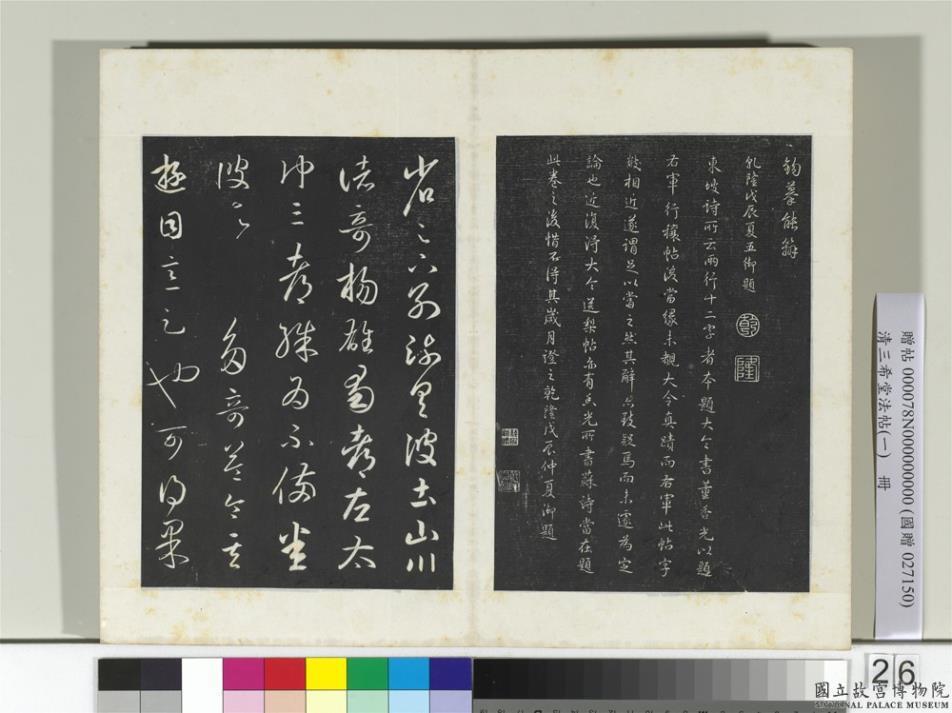 鈎摹能辦
乾隆戊辰夏五御題
乾
隆
東坡詩所云兩行十二字者本題大令書董香光以題
右軍行穰帖後當緣未覩大令真蹟而右軍此帖字
數相近遂謂足以當之然其辭亦致疑焉而未遽為定
論也近復得大令送梨帖亦有香光所書蘇詩當在題
此卷之後惜不得其歲月證之乾隆戊辰仲夏御題
省足下別疏具彼土山川
諸奇揚雄蜀都左太
冲三都殊為不備悉
彼故多奇益令其
遊目意足也可得果
贈帖 000078N000000000 (國贈 027150)
清三希堂法帖(一) 冊
26
國立故宮博物院
NATIONAL PALACE MUSEUM